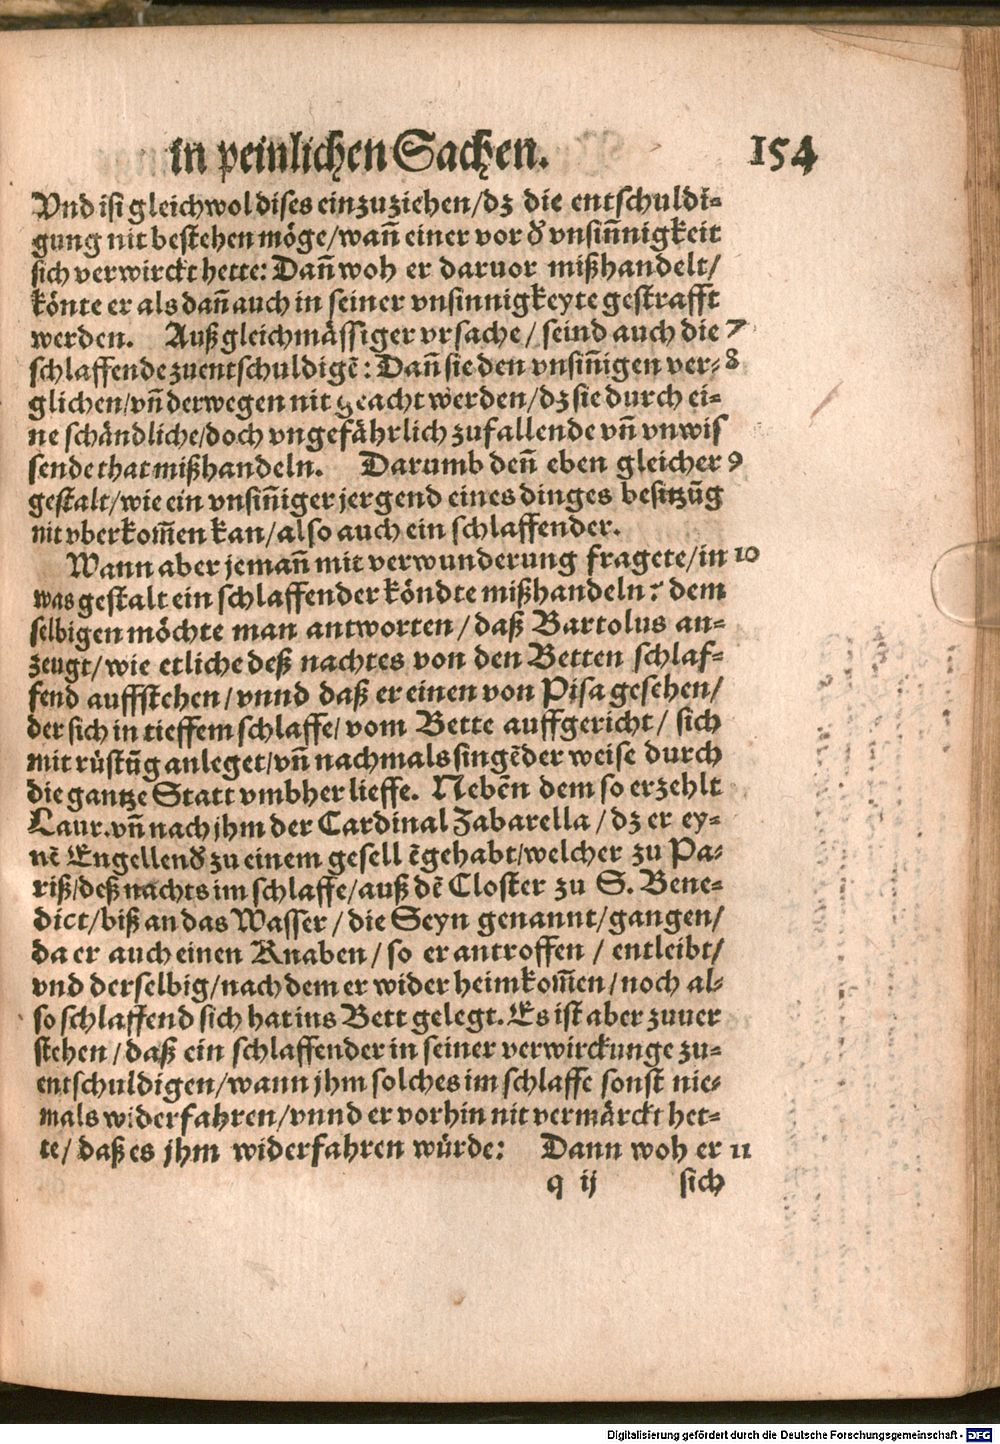 in peinlichen Sachen. 154
Vnd ist gleichwol dises einzuziehen/dz die entschuldi-
gung nit bestehen möge/wañ einer vor d vnsiñnigkeit
sich verwirckt hette: Dañ woh er daruor mißhandelt/
könte er als dañ auch in seiner vnsinnigkeyte gestrafft
werden. Auß gleichmässiger vrsache/seind auch die 7
schlaffende zuentschuldigẽ: Dañ sie den vnsiñigen ver- 8
glichen/vñ derwegen nit geacht werden/dz sie durch ei-
ne schändliche/doch vngefährlich zufallende vñ vnwis
sende that mißhandeln. Darumb deñ eben gleicher 9
gestalt/wie ein vnsiñiger jergend eines dinges besitzũg
nit vberkom̃en kan/also auch ein schlaffender.
Wann aber jemañ mit verwunderung fragete/in 10
was gestalt ein schlaffender köndte mißhandeln? dem
selbigen möchte man antworten/daß Bartolus an-
zeugt/wie etliche deß nachtes von den Betten schlaf-
fend auffstehen/vnnd daß er einen von Pisa gesehen/
der sich in tieffem schlaffe/vom Bette auffgericht/sich
mit rüstũg anleget/vñ nachmals singẽder weise durch
die gantze Statt vmbher lieffe. Nebẽn dem so erzehlt
Laur. vñ nach jhm der Cardinal Zabarella/dz er ey-
nẽ Engellend zu einem gesellẽ gehabt/welcher zu Pa-
riß/deß nachts im schlaffe/auß dẽ Closter zu S. Bene-
dict/biß an das Wasser/die Seyn genannt/gangen/
da er auch einen Knaben/so er antroffen/entleibt/
vnd derselbig/nach dem er wider heimkom̃en/noch al-
so schlaffend sich hat ins Bett gelegt. Es ist aber zuuer
stehen/daß ein schlaffender in seiner verwirckunge zu-
entschuldigen/wann jhm solches im schlaffe sonst nie-
mals widerfahren/vnnd er vorhin nit vermärckt het-
te/daß es jhm widerfahren würde: Dann woh er 11
q ij sich
Digitalisierung gefördert durch die Deutsche Forschungsgemeinschaft - DFG